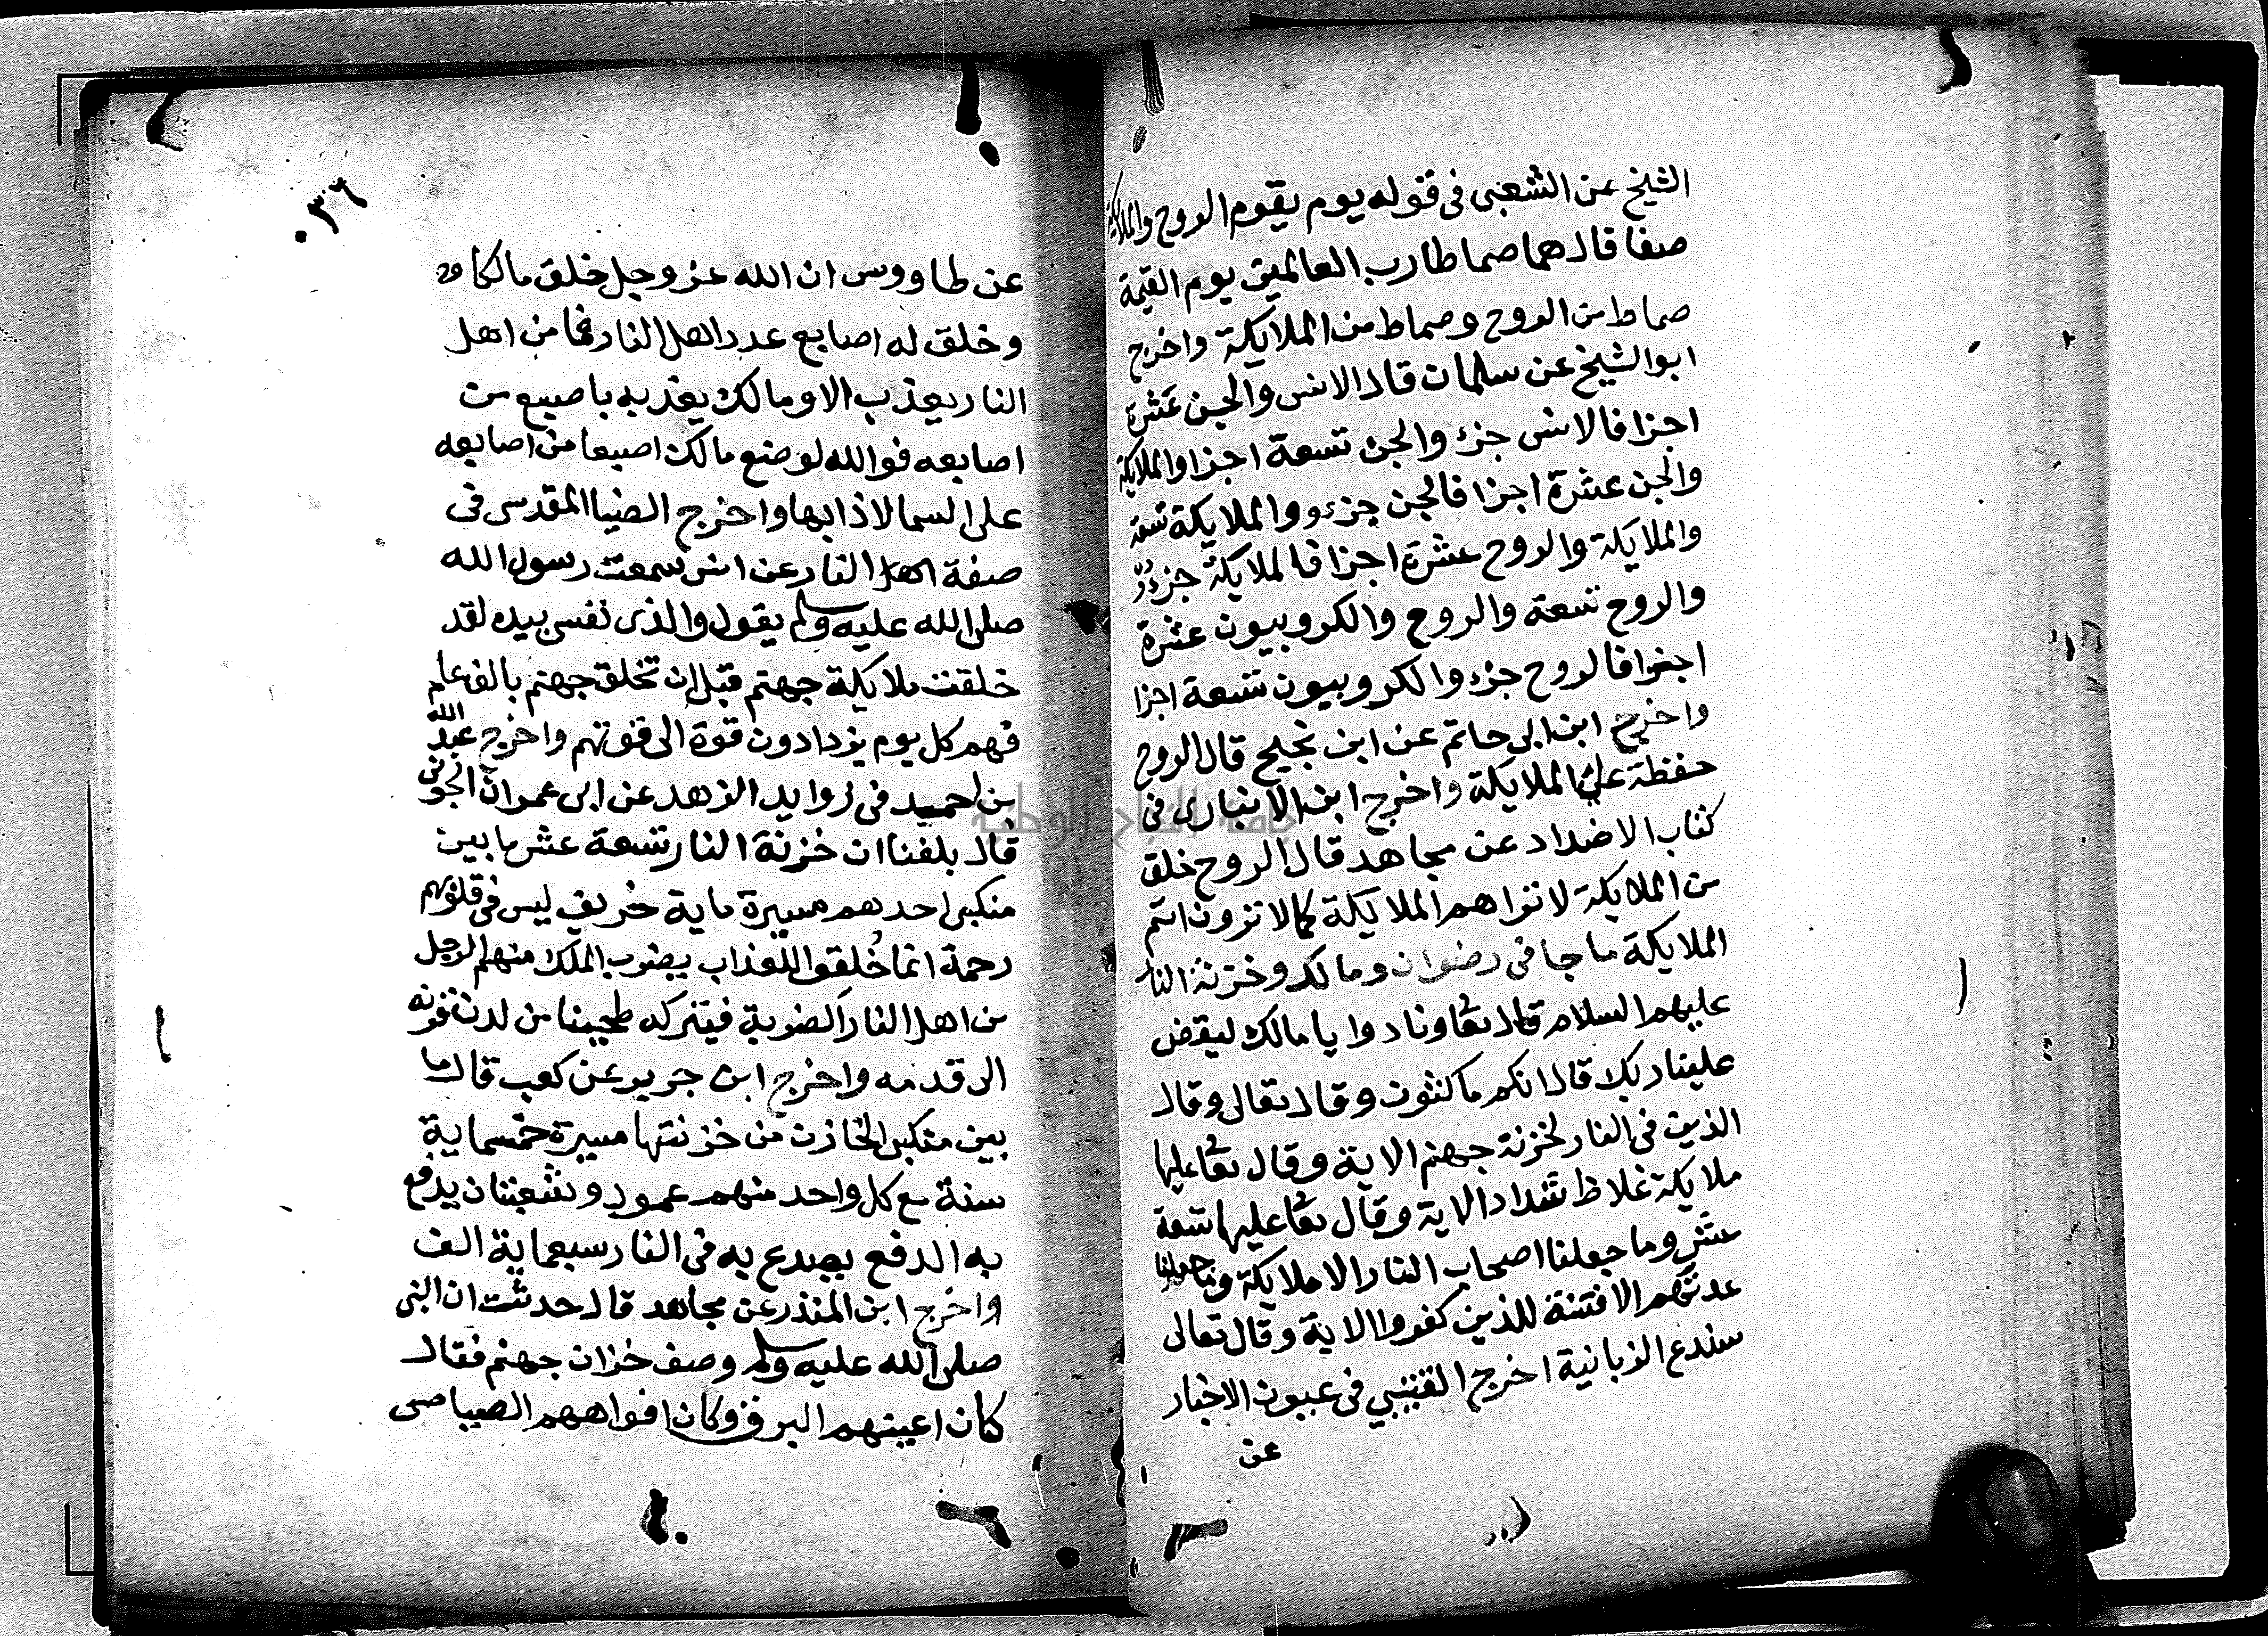 الشيخ عن الشعبى فى قوله يوم يقوم الروح والملايكة
صفا قال هما صماطا رب العالمين يوم القيمة
صماط من الروح وصماط من الملايكة واخرج
ابو الشيخ عن سلمان قال الانس والجن عشرة
اجزا فالانس جزء والجن تسعة اجزا والملايكة
والجن عشرة اجزا فالجن جزء والملايكة تسعة
والملايكة والروح عشرة اجزا فالملايكة جزء
والروح تسعة والروح والكروبيون عشرة
اجزا فالروح جزء والكروبيون تسعة اجزا
واخرج ابن ابى حاتم عن ابن نجيح قال الروح
حفظة على الملايكة واخرج ابن الانبارى فى
كتاب الاضداد عن مجاهد قال الروح خلق
من الملايكة لا تراهم الملايكة كما لا ترون انتم
الملايكة ما جا فى رضوان ومالك وخزنة النار
عليهم السلام قال تعا ونادوا يا مالك ليقض
علينا ربك قال انكم ماكثون وقال تعالى وقال
الذين فى النار لخزنة جهنم الاية وقال تعا عليها
ملايكة غلاظ شداد الاية وقال تعا عليها تسعة
عشر وما جعلنا اصحاب النار الا ملايكة وما جعلنا
عدتهم الا فتنة للذين كفروا الاية وقال تعالى
سندع الزبانية اخرج القتيبي فى عيون الاخبار
عن
٠٣٦
عن طاووس ان الله عز وجل خلق مالكا
وخلق له اصابع عدد اهل النار فما من اهل
النار يعذب الا ومالك يعذبه باصبع من
اصابعه فوالله لو ضع مالك اصبعا من اصابعه
على السما لاذابها واخرج الضيا المقدسى فى
صفة اهل النار عن انس سمعت رسول الله
صلى الله عليه وسلم يقول والذى نفسى بيده لقد
خلقت ملايكة جهنم قبل ان تخلق جهنم بالف عام
فهم كل يوم يزدادون قوة الى قوتهم واخرج عبد الله
بن احميد فى زوايد الزهد عن ابى عمران الجونى
قال بلغنا ان خزنة النار تسعة عشر ما بين
منكبى احدهم مسيرة ماية خريف ليس فى قلوبهم
رحمة انما خُلقوا للعذاب يضرب الملك منهم الرجل
من اهل النار الضربة فيتركه طحينا من لدن قرنه
الى قدمه واخرج ابن جرير عن كعب قال ما
بين منكبى الخازن من خزنتها مسيرة خمسماية
سنة مع كل واحد منهم عمود وشعبتان يدفع
به الدفع يصدع به فى النار سبعماية الف
واخرج ابن المنذر عن مجاهد قال حدثت ان النبى
صلى الله عليه وسلم وصف خزان جهنم فقال
كان اعينهم البرق وكان افواههم الصياصى